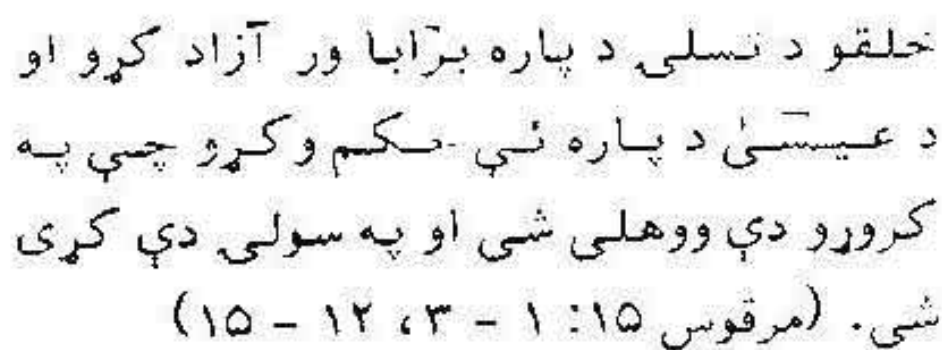 خلقو د تسلۍ د پاره برابا ور آزاد کړو او
د عیسیٰ د پاره ئې حکم وکړو چې په
کروړو دې ووهلی شی او په سولۍ دې کړی
شی. (مرقوس ۱۵: ۱ - ۳، ۱۲ - ۱۵)